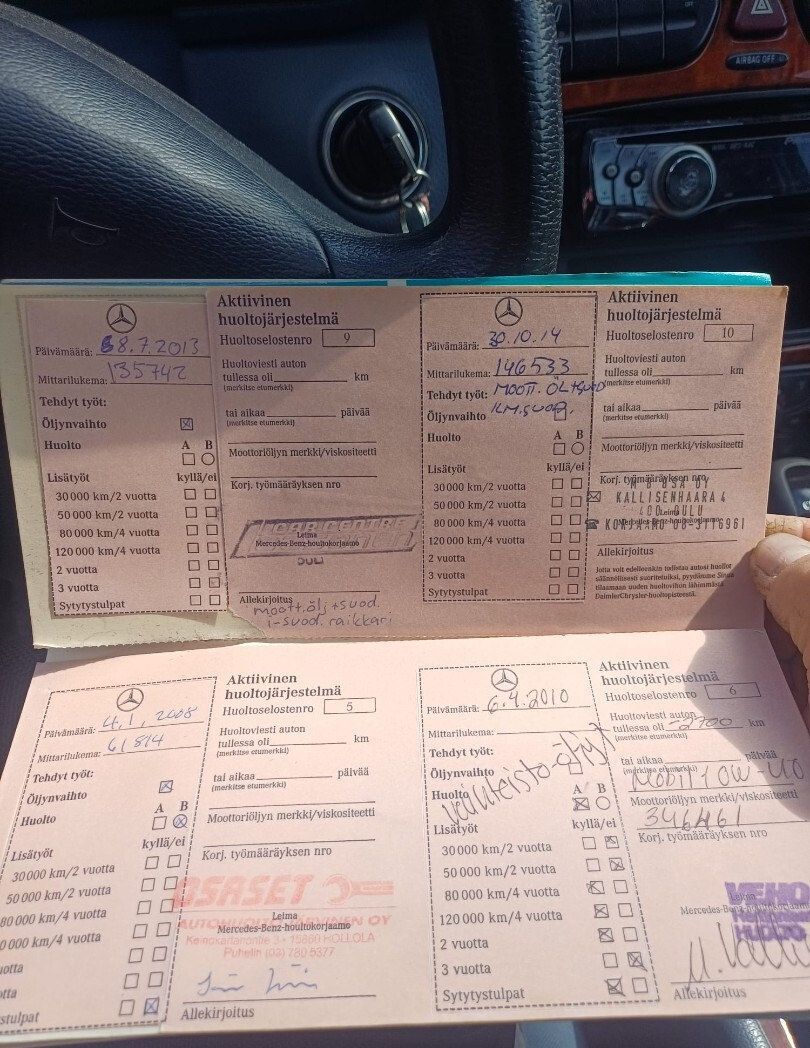 AIRBAG OFF
Päivämäärä: 8.7.2013
Mittarilukema: 135742
Tehdyt työt:
Öljynvaihto
Huolto A B
Lisätyöt kyllä/ei
30 000 km/2 vuotta
50 000 km/2 vuotta
80 000 km/4 vuotta
120 000 km/4 vuotta
2 vuotta
3 vuotta
Sytytystulpat
Aktiivinen
huoltojärjestelmä
Huoltoselostenro 9
Huoltoviesti auton
tullessa oli km
(merkitse etumerkki)
tai aikaa päivää
(merkitse etumerkki)
Moottoriöljyn merkki/viskositeetti
Korj. työmääräyksen nro
CAR CENTRE
Leima
Mercedes-Benz-huoltokorjaamo
Allekirjoitus
moott.ölj+suod.
i-suod. raikkari
Päivämäärä: 30.10.14
Mittarilukema: 146533
Tehdyt työt: MOOTT. ÖL+SUOD
Öljynvaihto ILM.SUOD.
Huolto A B
Lisätyöt kyllä/ei
30 000 km/2 vuotta
50 000 km/2 vuotta
80 000 km/4 vuotta
120 000 km/4 vuotta
2 vuotta
3 vuotta
Sytytystulpat
Aktiivinen
huoltojärjestelmä
Huoltoselostenro 10
Huoltoviesti auton
tullessa oli km
(merkitse etumerkki)
tai aikaa päivää
(merkitse etumerkki)
Moottoriöljyn merkki/viskositeetti
Korj. työmääräyksen nro
KALLISENHAARA 4
OULU
Leima
Mercedes-Benz-huoltokorjaamo
KORJAAMO 08-3116961
Allekirjoitus
Jotta voit edelleenkin todistaa autosi huollot
säännöllisesti suoritetuiksi, pyydämme Sinua
tilaamaan uuden huoltovihon lähimmästä
DaimlerChrysler-huoltopisteestä.
Päivämäärä: 4.1.2008
Mittarilukema: 61814
Tehdyt työt:
Öljynvaihto
Huolto A B
Lisätyöt kyllä/ei
30 000 km/2 vuotta
50 000 km/2 vuotta
80 000 km/4 vuotta
0 000 km/4 vuotta
uotta
otta
stulpat
Aktiivinen
huoltojärjestelmä
Huoltoselostenro 5
Huoltoviesti auton
tullessa oli km
(merkitse etumerkki)
tai aikaa päivää
(merkitse etumerkki)
Moottoriöljyn merkki/viskositeetti
Korj. työmääräyksen nro
OSASET
Leima
Mercedes-Benz-huoltokorjaamo
Keinokallionte 3 15860 HOLLOLA
Puhelin (03) 780 5377
Allekirjoitus
Päivämäärä: 6.4.2010
Mittarilukema:
Tehdyt työt:
Öljynvaihto
Vaihteisto-öljyt
Huolto A B
Lisätyöt kyllä/ei
30 000 km/2 vuotta
50 000 km/2 vuotta
80 000 km/4 vuotta
120 000 km/4 vuotta
2 vuotta
3 vuotta
Sytytystulpat
Aktiivinen
huoltojärjestelmä
Huoltoselostenro 6
Huoltoviesti auton
tullessa oli -2700 km
(merkitse etumerkki)
tai aikaa päivää
(merkitse etumerkki)
Mobil 1 0W-40
Moottoriöljyn merkki/viskositeetti
346461
Korj. työmääräyksen nro
VEHO
Leima
Mercedes-Benz-huoltokorjaamo
HUOLTO
Allekirjoitus